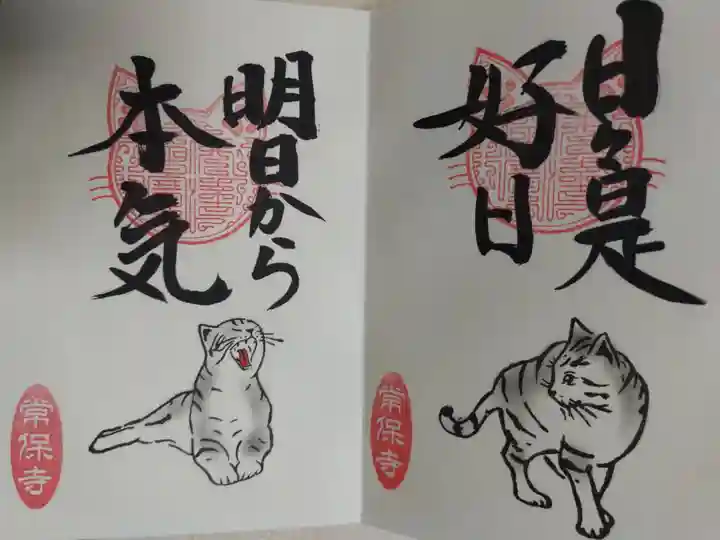 日々是
好日
常保寺
明日から
本気
常保寺